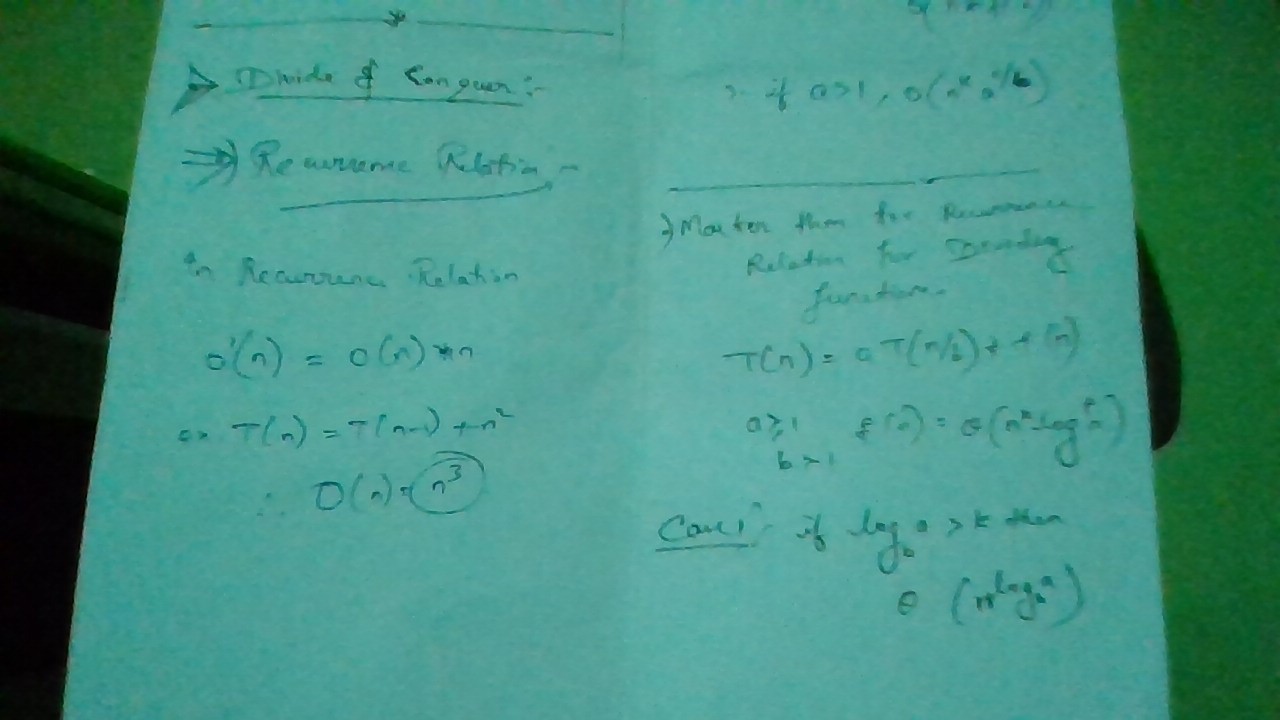 Divide & Conquer:-
⇒) Recurrence Relation :-
In Recurrence Relation
O'(n) = O(n) * n
ex T(n) = T(n-1) + n²
∴ O(n) = n³
if a>1, O(nᵏ aⁿ/ᵇ)
Relation for
function.
T(n) = a T(n/b) + f(n)
a≥1 f(n) = θ(nᵏ logᵖ n)
b>1
Case 1:- if log_b a > k then
θ (n^log_b a)